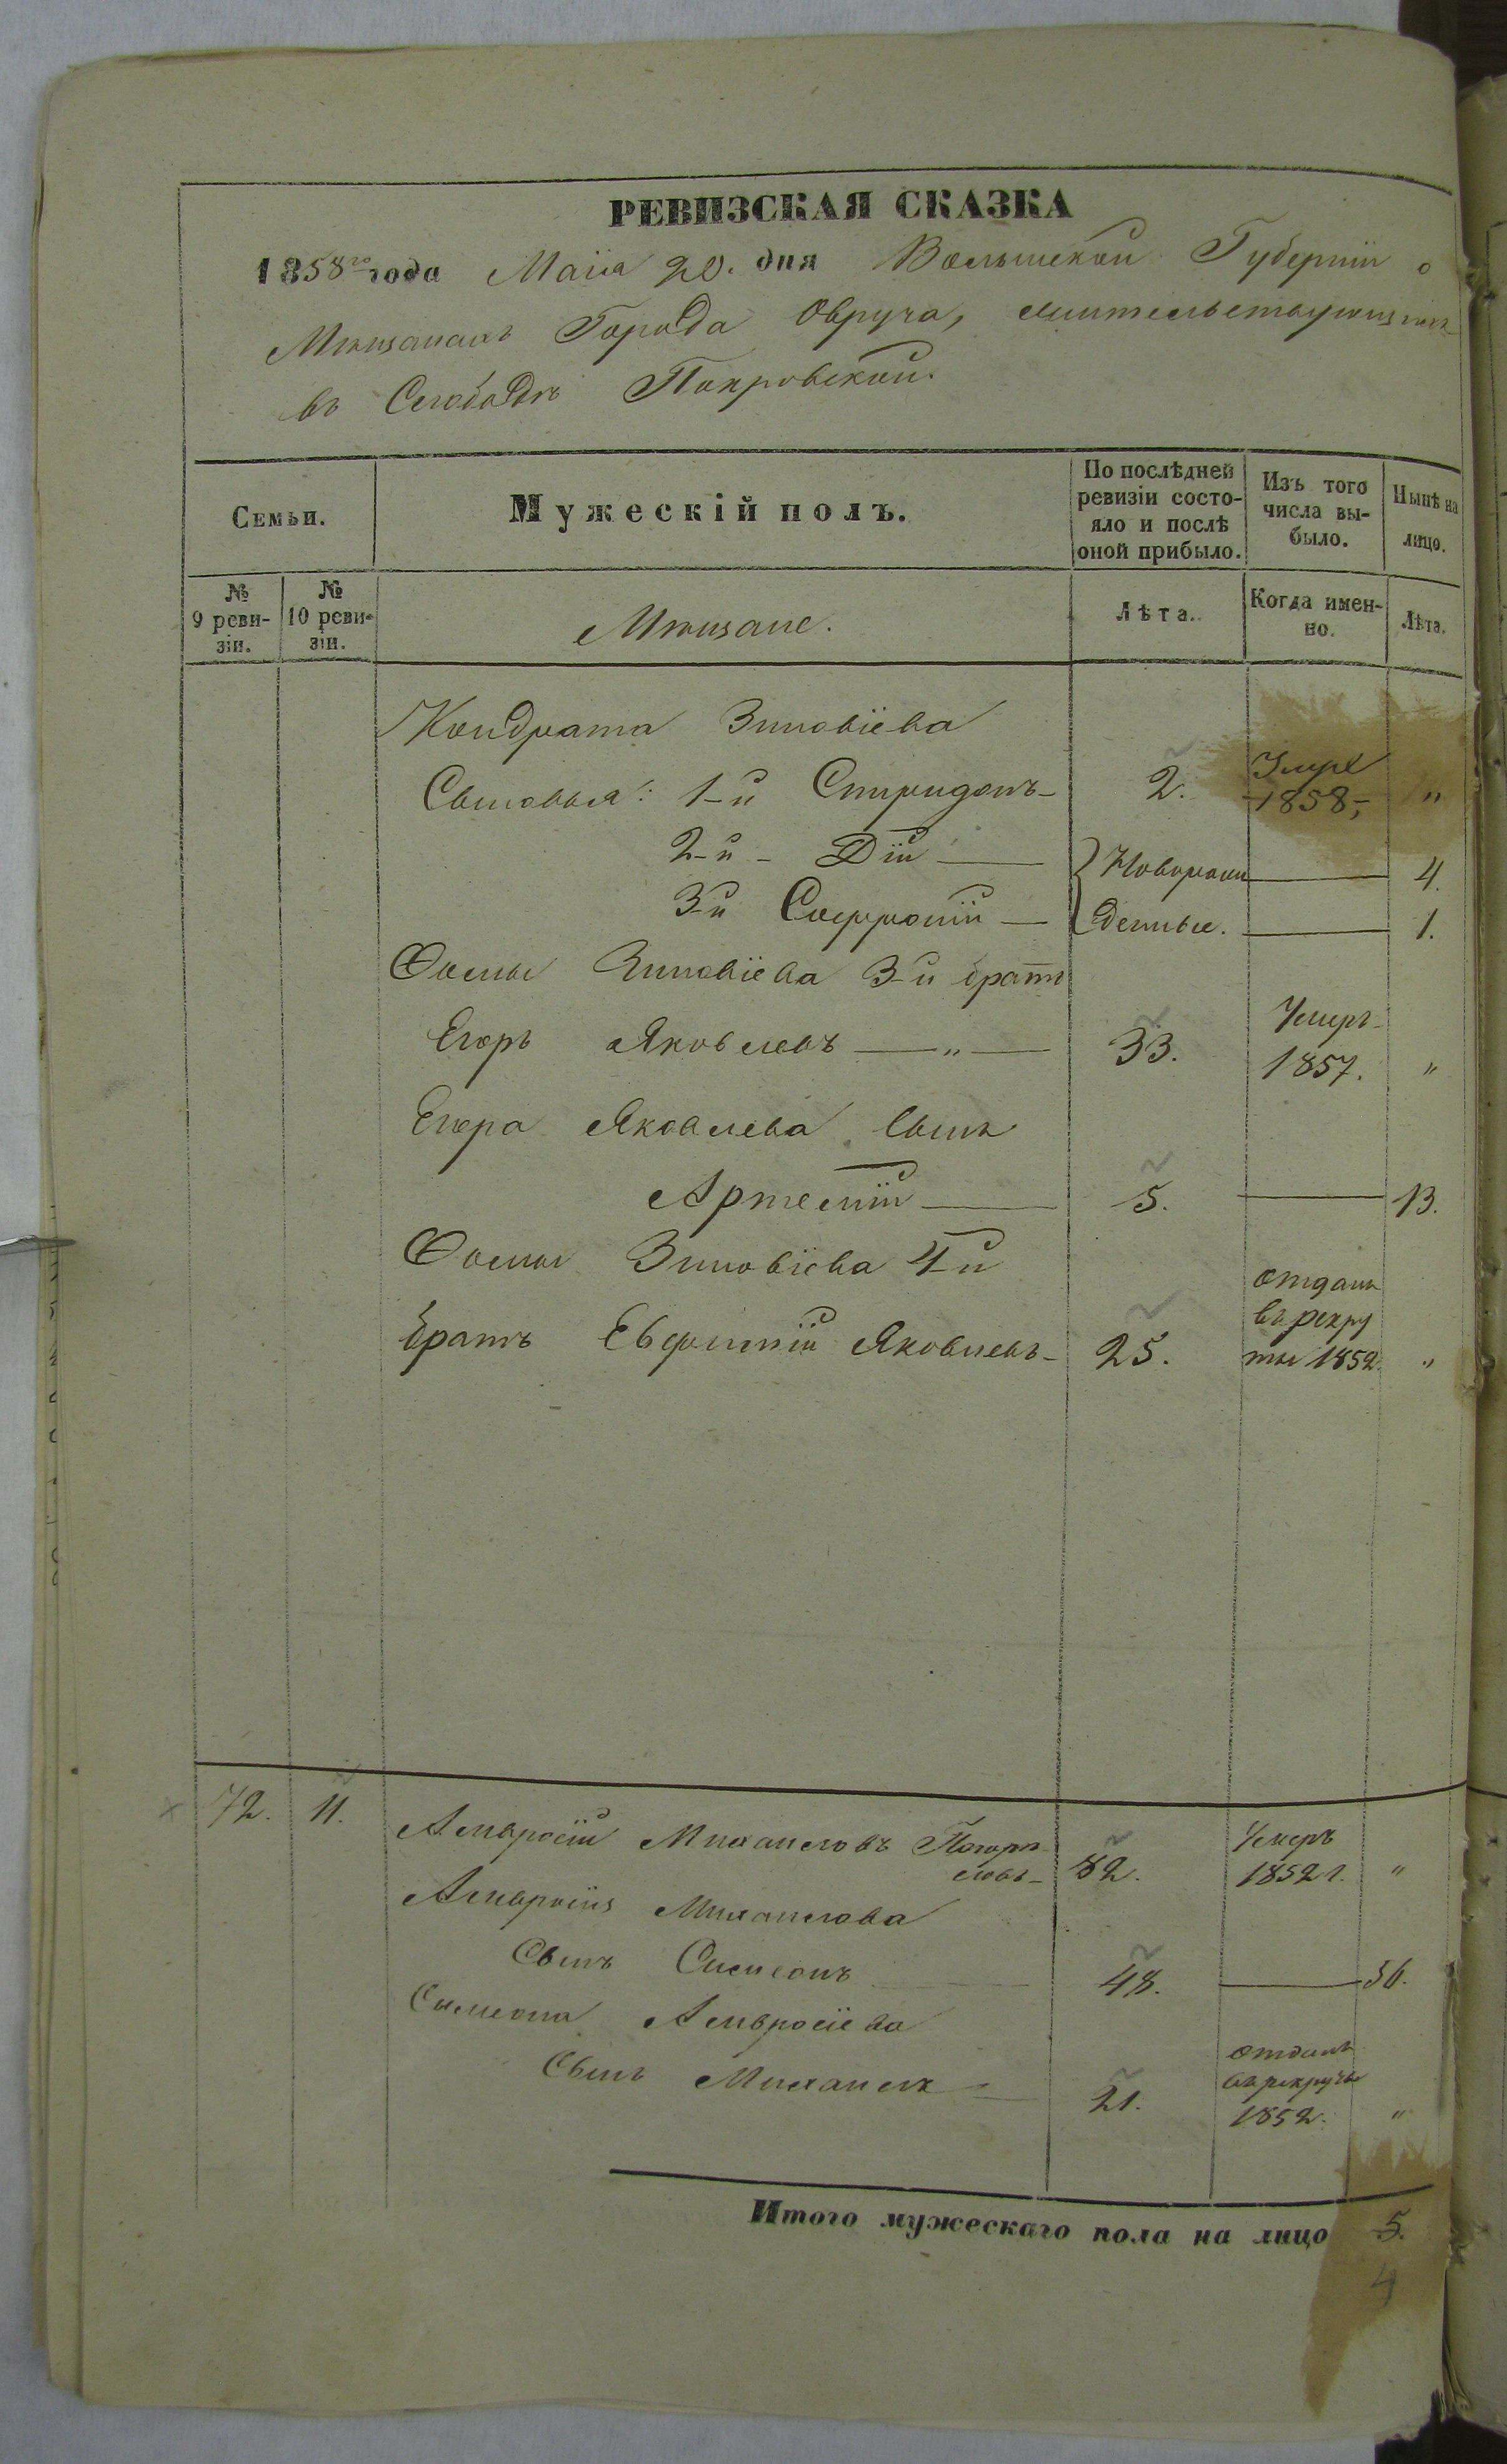 РЕВИЗСКАЯ СКАЗКА
1858го года Маія 20. дня Волынской Губерніи о
Мѣщанахъ Города Овруча, жительствующихъ
въ Слободѣ Покровской.
Семьи.
Мужескій полъ.
По послѣдней ревизіи состо-
яло и послѣ
оной прибыло.
Изъ того
числа вы-
было.
Нынѣ на
лицо.
№
9 реви-
зіи.
№
10 реви-
зіи.
Мѣщане.
Лѣта.
Когда имен-
но.
Лѣта.
Кондрата Зиновіева
Сыновья: 1-й Спиридонъ 2. Умре 1858, "
2-й Дій Новорож 4.
3-й Софроній денные. 1.
Фомы Зиновіева 3-й братъ
Егоръ Яковлевъ " 33. Умеръ 1857. "
Егора Яковлева Сынъ
Артемій 5. 13.
Фомы Зиновіева 4-й
братъ Евфимій Яковлевъ 25. отданъ въ рекру ты 1852. "
72. 11. Амвросій Михаиловъ Погорѣ
ловъ 82. Умеръ 1852 г. "
Амвросія Михаилова
Сынъ Симеонъ 48. 56.
Симеона Амвросіева
Сынъ Михаилъ 21. отданъ въ рекруты 1852. "
Итого мужескаго пола на лицо 5.
4